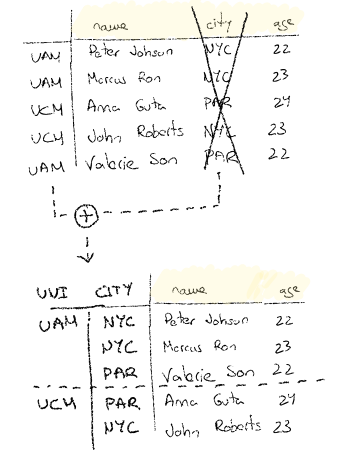 name city age
UAM Peter Johson NYC 22
UAM Marcus Ron NYC 23
UCM Anna Guta PAR 24
UCM John Roberts NYC 23
UAM Valarie Son PAR 22
+
UVI CITY name age
UAM NYC Peter Johson 22
NYC Marcus Ron 23
PAR Valarie Son 22
UCM PAR Anna Guta 24
NYC John Roberts 23